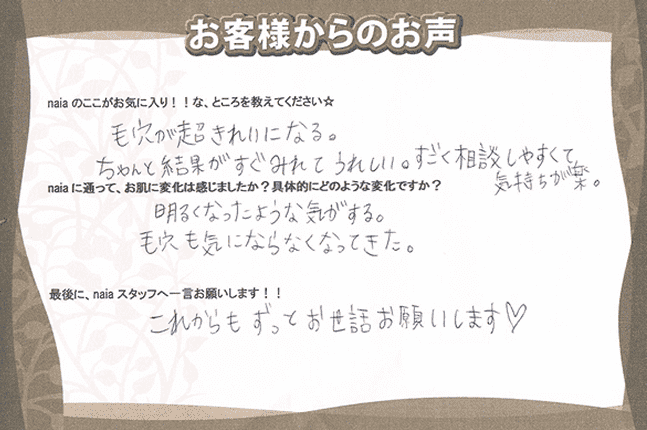 お客様からのお声
naiaのここがお気に入り！！な、ところを教えてください☆
毛穴が超きれいになる。
ちゃんと結果がすぐみれてうれしい。すごく相談しやすくて
気持ちが楽。
naiaに通って、お肌に変化は感じましたか？具体的にどのような変化ですか？
明るくなったような気がする。
毛穴も気にならなくなってきた。
最後に、naiaスタッフへ一言お願いします！！
これからもずっとお世話お願いします♡